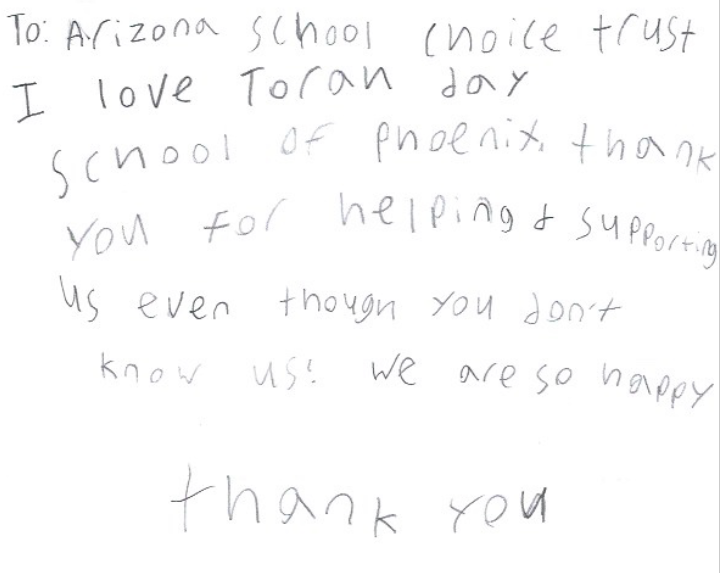 To: Arizona school choice trust
I love Torah day
school of phoenix. thank
you for helping & supporting
us even though you don't
know us! we are so happy
thank you